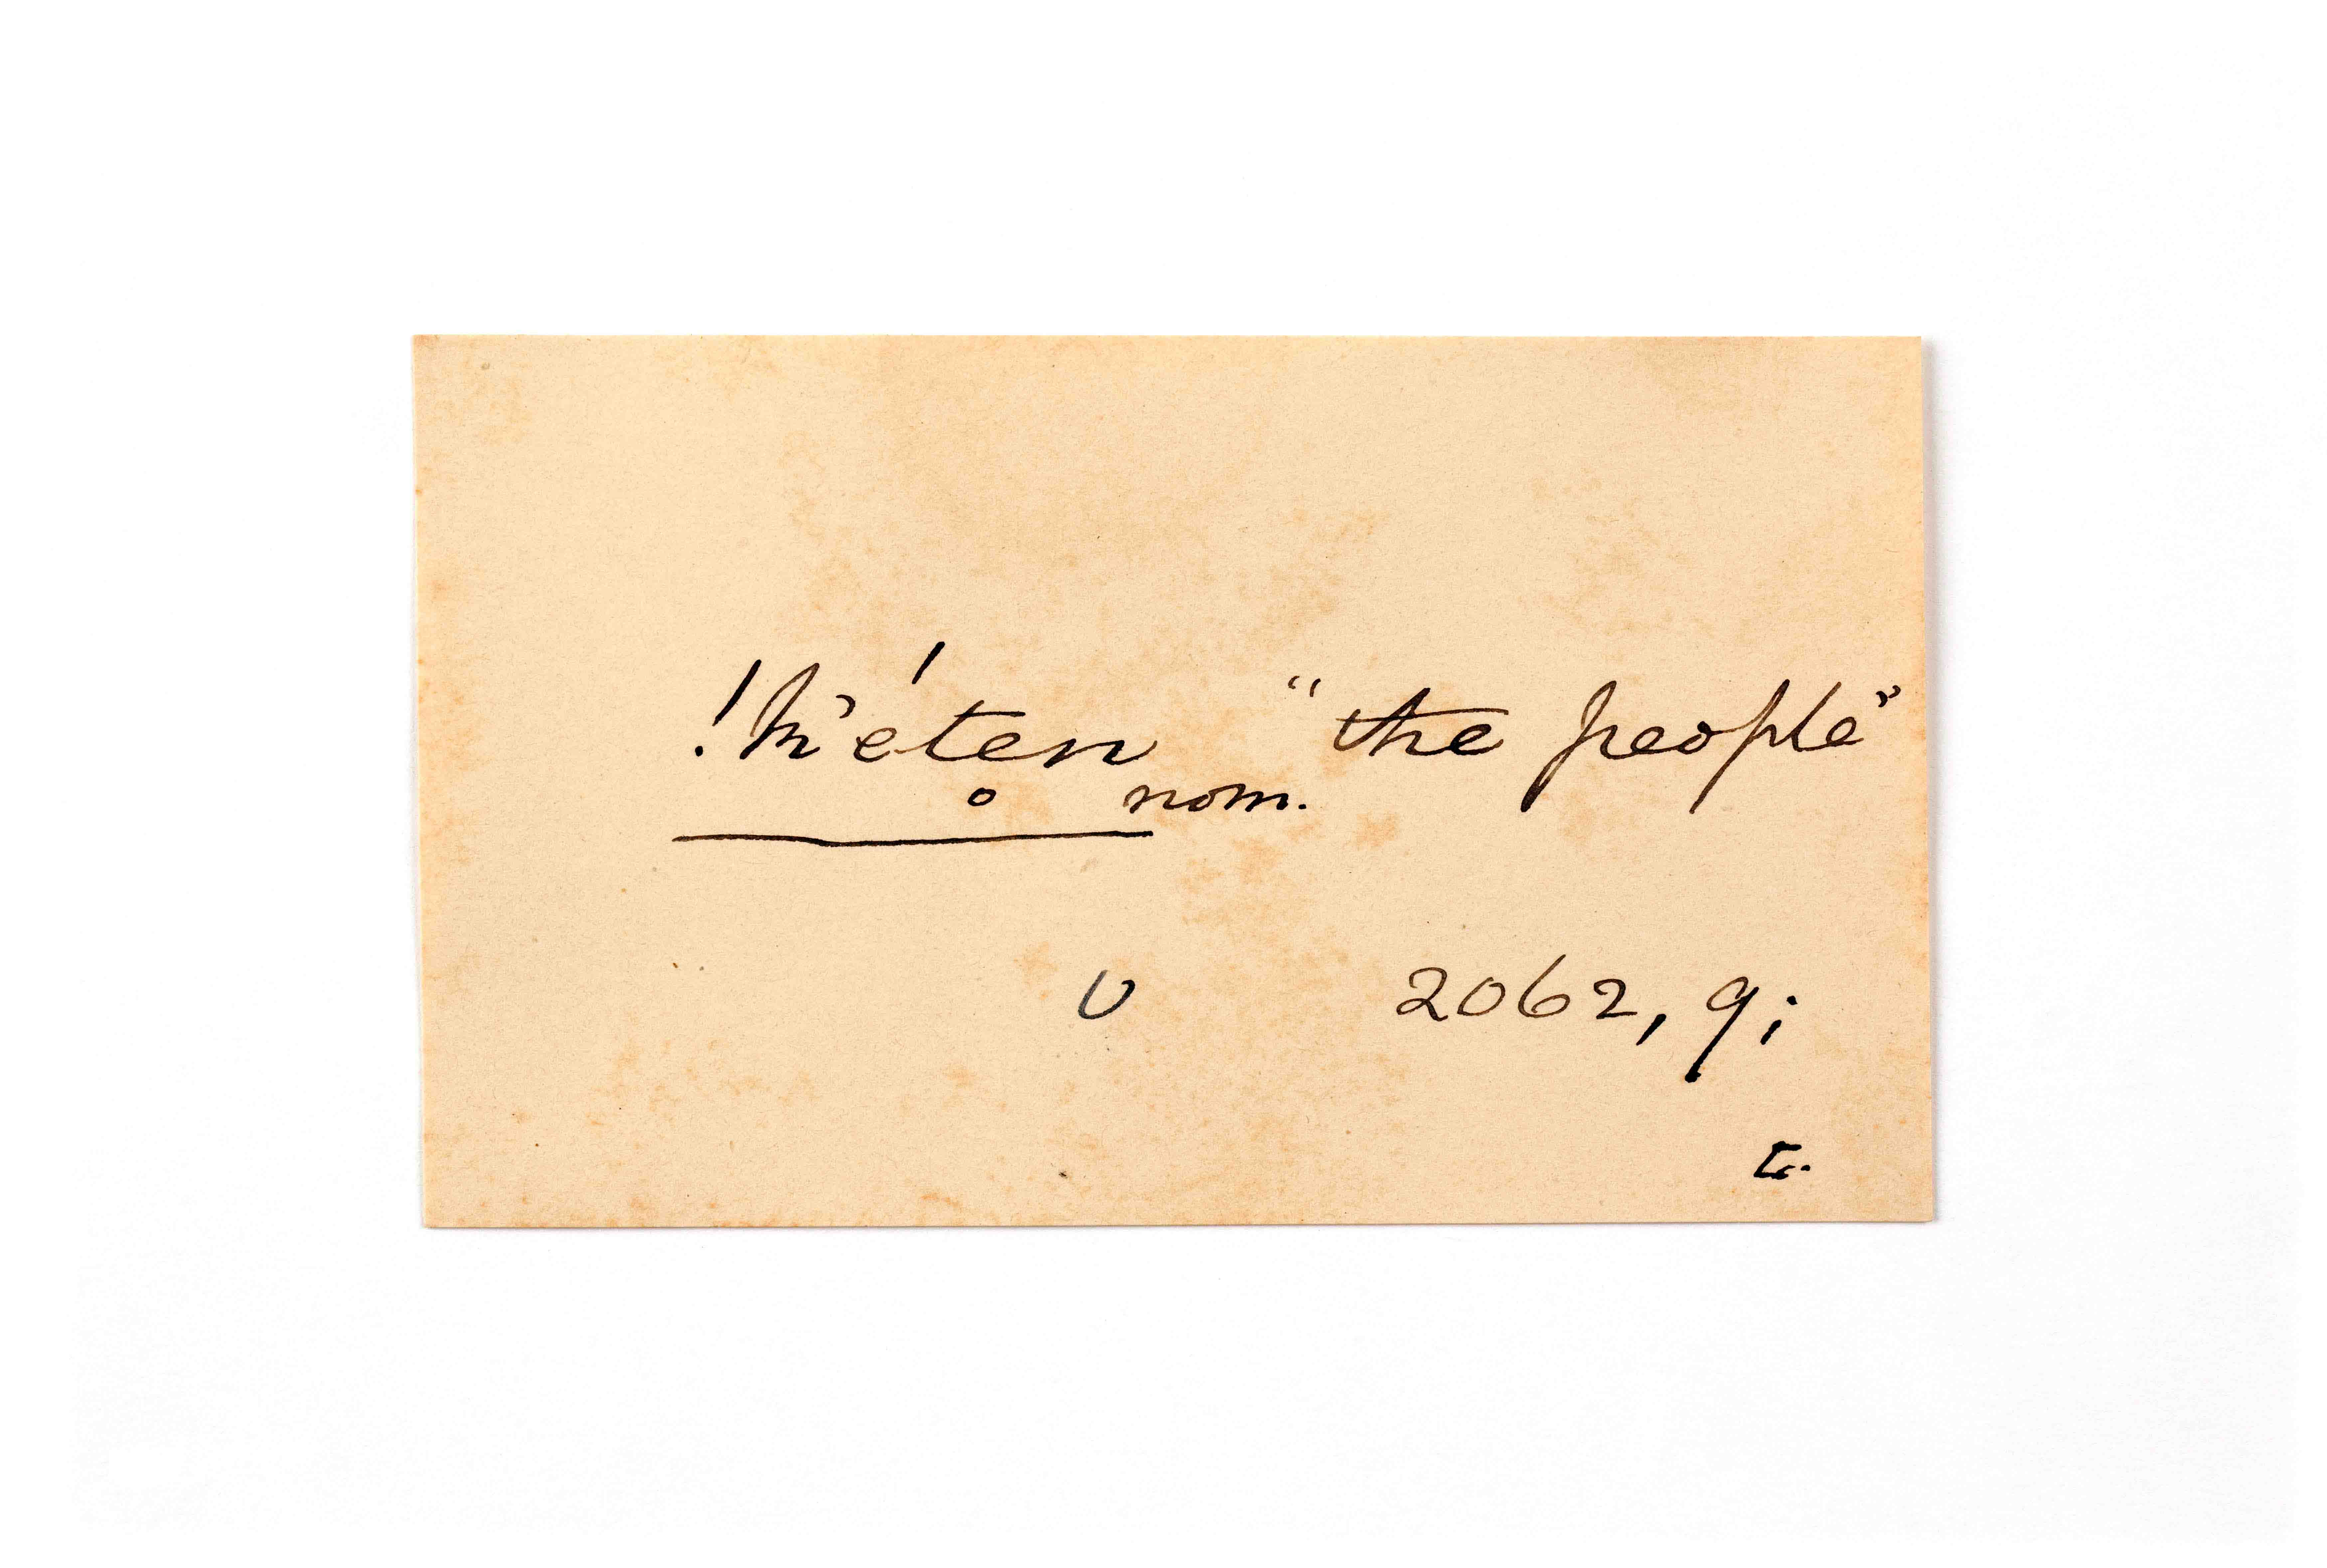 !k̔éten̥ "the people"
nom.
U 2062, 9;